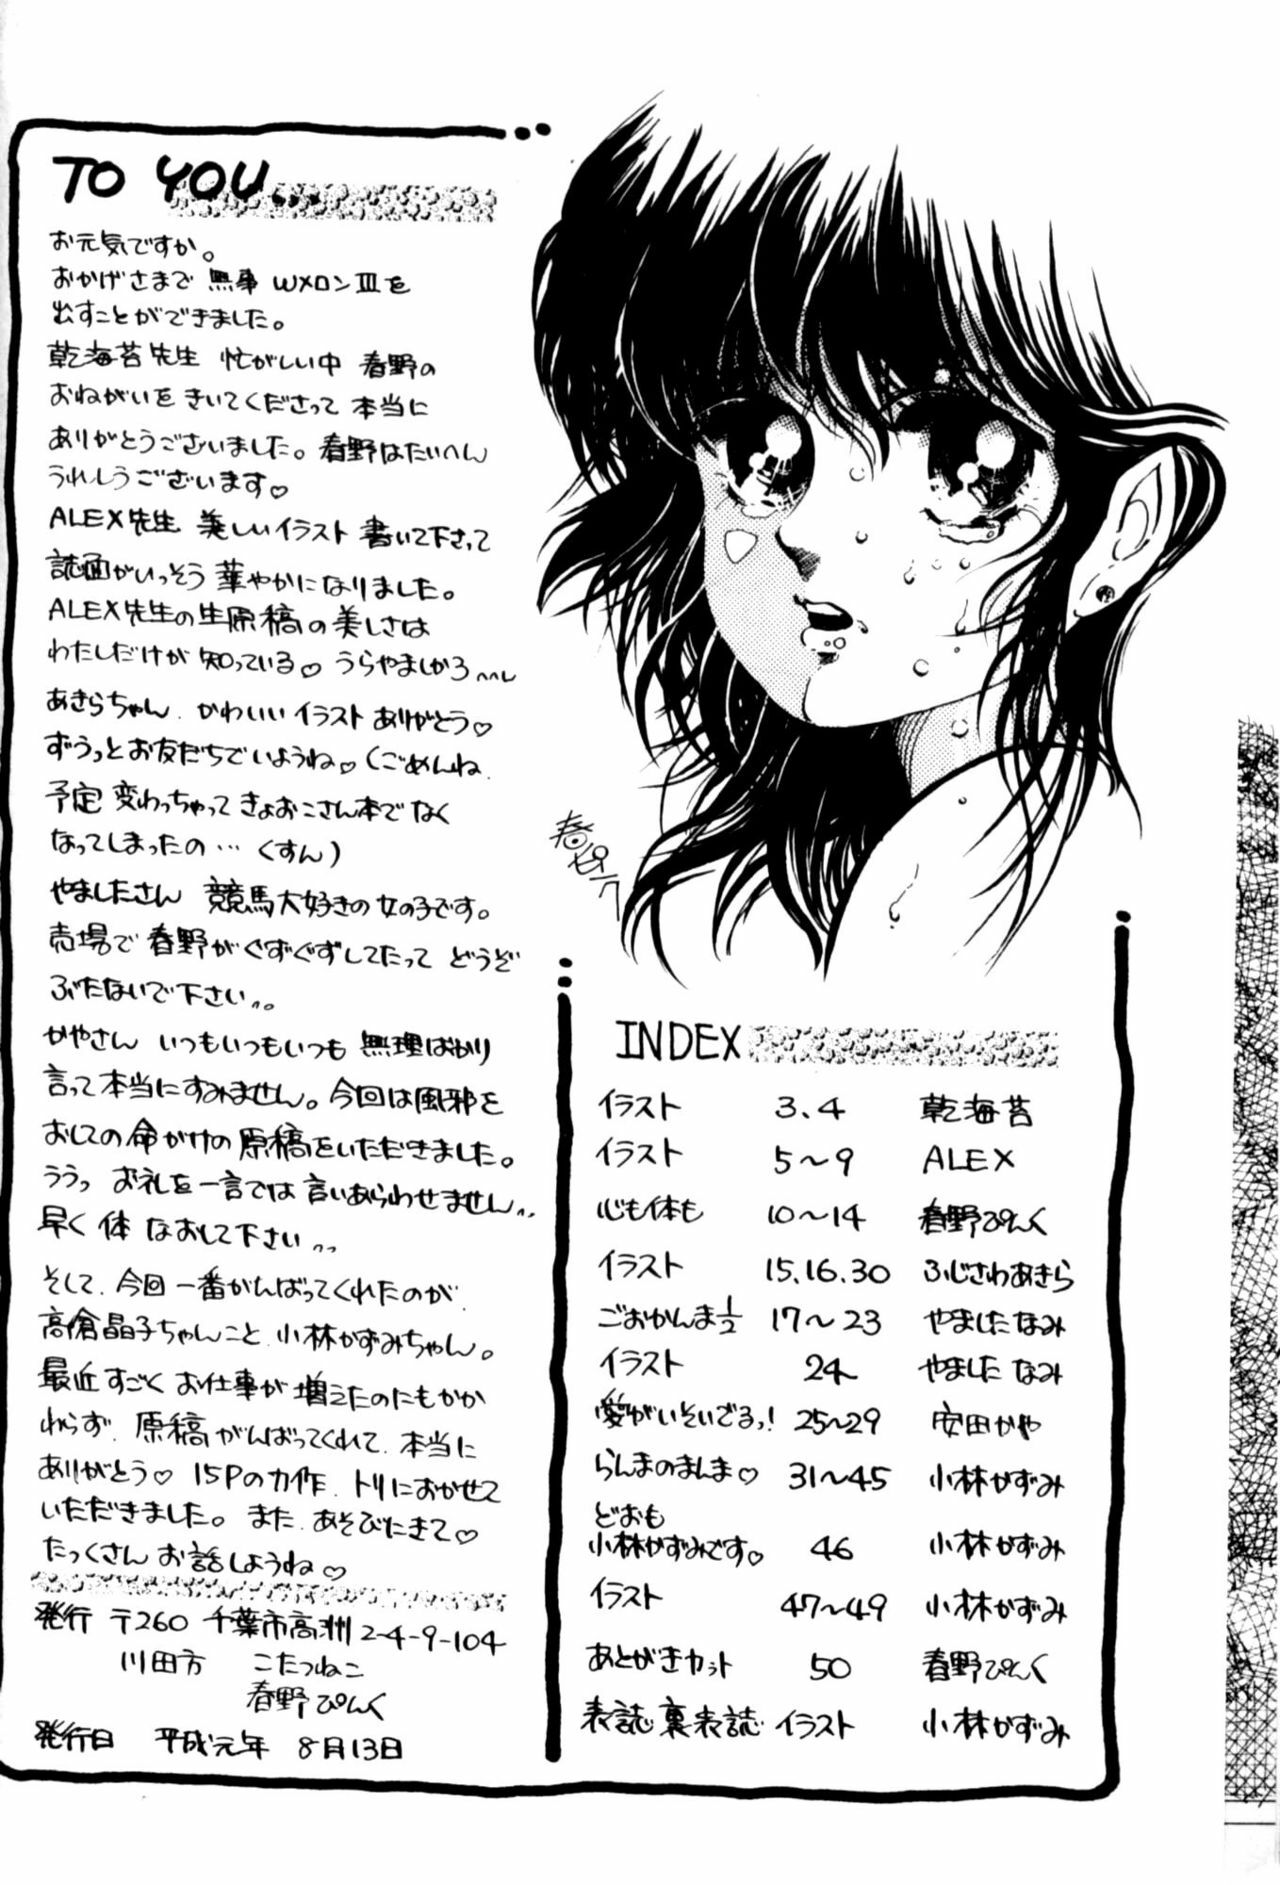 TO YOU...
お元気ですか。
おかげさまで 無事 WメロンⅢを
出すことができました。
乾海苔先生 忙がしい中 春野の
おねがいを きいてくださって 本当に
ありがとうございました。春野はたいへん
うれしうございます♡
ALEX先生 美しいイラスト 書いて下さって
誌面がいっそう 華やかになりました。
ALEX先生の生原稿の美しさは
わたしだけが 知っている♡ うらやましかろ〜〜
あきらちゃん. かわいい イラスト ありがとう♡
ずうっとお友だちでいようね♡(ごめんね.
予定 変わっちゃって きょおこさん本でなく
なってしまったの… くすん)
やましたさん 競馬大好きの女の子です。
売場で 春野がぐずぐずしてたって どうぞ
ぶたないで下さい..
かやさん いつもいつもいつも 無理ばかり
言って本当にすみません。今回は風邪を
おしての命がけの原稿をいただきました。
ううっ お礼を一言では言いあらわせません..
早く 体 なおして下さい..
そして. 今回 一番がんばってくれたのが.
高倉晶子ちゃんこと. 小林かずみちゃん。
最近すごく お仕事が 増えたのにもかか
わらず. 原稿がんばってくれて. 本当に
ありがとう♡ 15Pの力作. トリにおかせて
いただきました。 また. あそびにきて♡
たっくさん お話しようね♡
発行 〒260 千葉市高洲2-4-9-104
川田方 こたつねこ
春野ぴんく
発行日 平成元年 8月13日
INDEX
イラスト 3.4 乾海苔
イラスト 5〜9 ALEX
心も体も 10〜14 春野ぴんく
イラスト 15.16.30 ふじさわあきら
ごおかんま1/2 17〜23 やましたなみ
イラスト 24 やました なみ
愛がいそいでるっ! 25〜29 安田かや
らんまのまんま♡ 31〜45 小林かずみ
どおも
小林かずみです♡ 46 小林かずみ
イラスト 47〜49 小林かずみ
あとがきカット 50 春野ぴんく
表誌 裏表誌 イラスト 小林かずみ